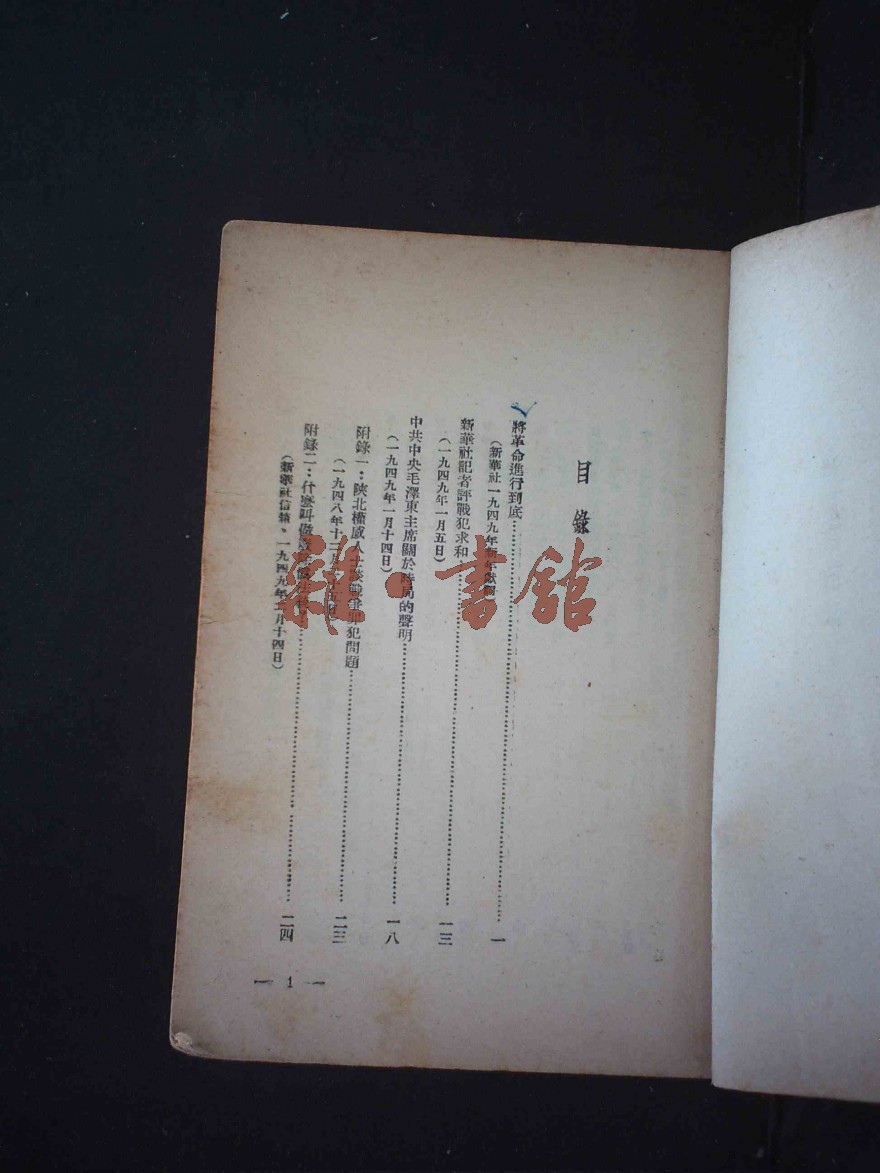 目錄
將革命進行到底……一
(新華社一九四九年新年獻詞)
新華社記者評戰犯求和……一三
(一九四九年一月五日)
中共中央毛澤東主席關於時局的聲明……一八
(一九四九年一月十四日)
附錄一:陝北權威人士談戰爭罪犯問題……二三
(一九四八年十二月
附錄二:什麼叫做……二四
(新華社信箱,一九四九年 月十四日)
— 1 —
雜·書館